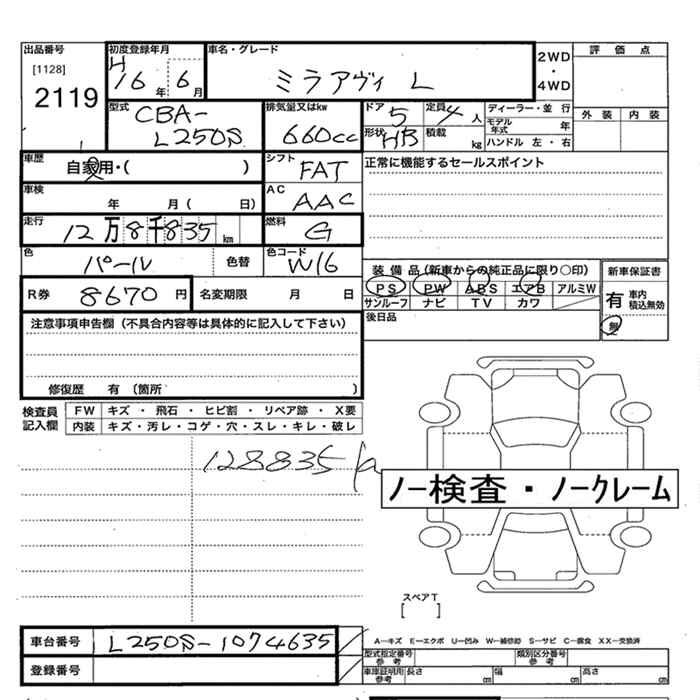 出品番号 初度登録年月 車名・グレード 評価点
[1128] H 16年 6月 ミラアヴィ L 2WD・4WD
2119 外装 内装
型式 CBA-L250S 排気量又はkw 660cc ドア 5 定員 4人 ディーラー・並行
形状 HB 積載 kg モデル年式 年
ハンドル 左・右
車歴 自家用・( ) シフト FAT 正常に機能するセールスポイント
車検 年 月( 日) AC AAC
走行 12万8千835km 燃料 G
色 パール 色替 色コード W16 装備品(新車からの純正品に限り○印) 新車保証書
PS PW ABS エアB アルミW 有 車内積込無効
R券 8670円 名変期限 月 日 サンルーフ ナビ TV カワ
後日品 無
注意事項申告欄(不具合内容等は具体的に記入して下さい)
修復歴 有(箇所 )
検査員記入欄 FW キズ・飛石・ヒビ割・リペア跡・X要
内装 キズ・汚レ・コゲ・穴・スレ・キレ・破レ
128835
ノー検査・ノークレーム
スペアT
[ ]
車台番号 L250S-1074635 A-キズ E-エクボ U-凹み W-補修跡 S-サビ C-腐食 XX-交換済
型式指定番号 参考 類別区分番号 参考
登録番号 車庫証明用 参考 長さ cm 幅 cm 高さ cm